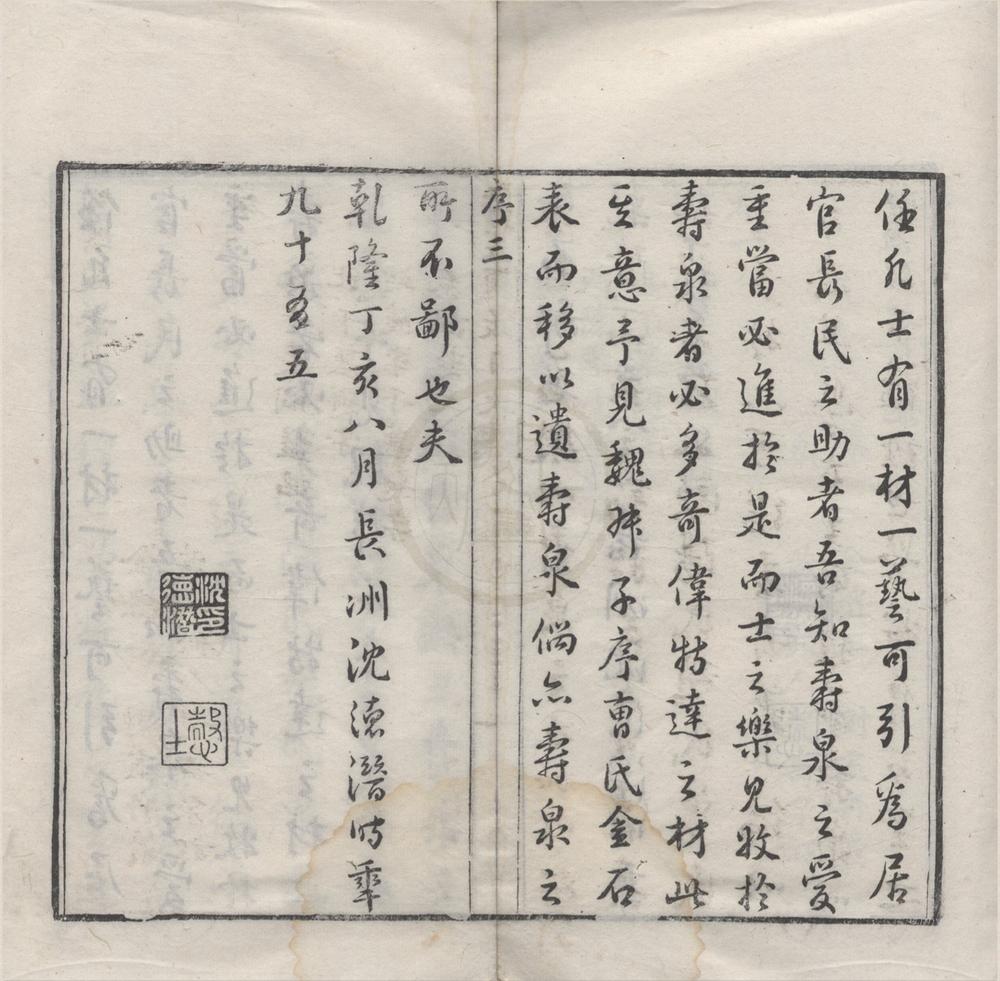 任凡士有一材一藝可引爲居
官長民之助者吾知壽泉之愛
重當必進於是而士之樂見收於
壽泉者必多奇偉特達之材此
其意予見魏叔子序曹氏金石
表而移以遺壽泉倘亦壽泉之
序三
所不鄙也夫
乾隆丁亥八月長洲沈德潛時年
九十有五
沈印德潛
愨士